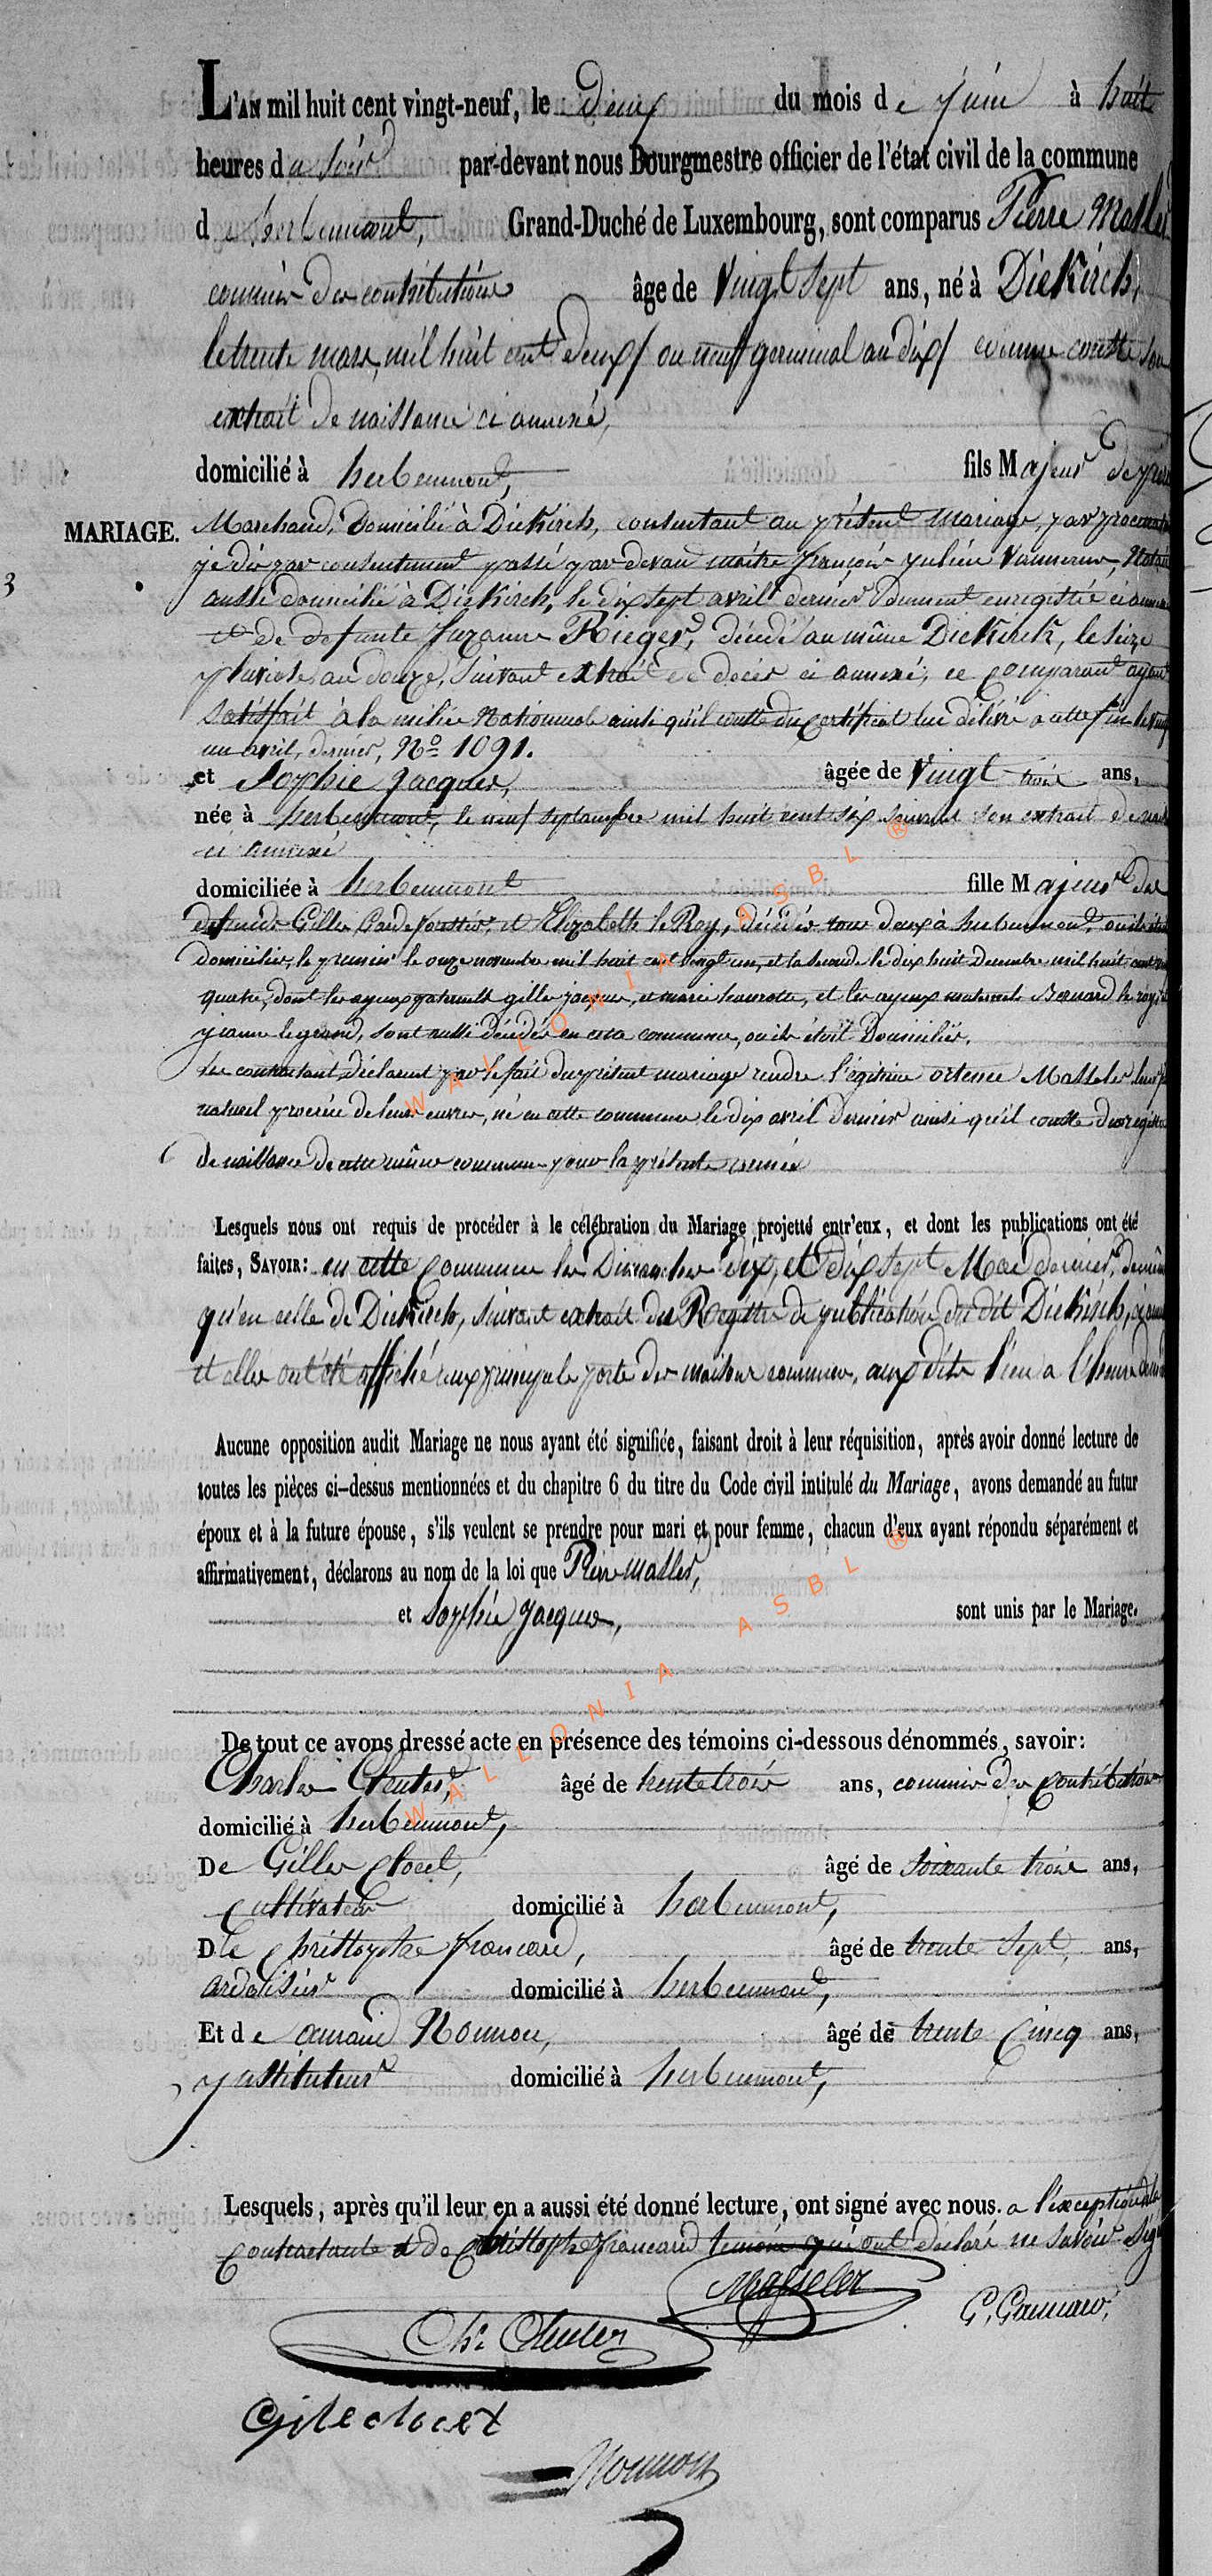 L'AN mil huit cent vingt-neuf, le Deux du mois de juin à huit
heures du soir par-devant nous Bourgmestre officier de l'état civil de la commune
de herbeumont, Grand-Duché de Luxembourg, sont comparus Pierre Masseler
commis des contributions âge de Vingt Sept ans, né à Diekirch,
le trente mars, mil huit cent deux / ou neuf germinal an dix / comme conste son
extrait de naissance ci annexé,
domicilié à herbeumont, fils Majeur de pierre
MARIAGE.
Marchand, Domicilié à Diekirch, consentant au présent mariage, par
je dis par consentement passé par devant maître françois julien Vannerus, Notaire
aussi domicilié à Diekirch, le dix sept avril dernier Dument enregistré ci annexé
3
et de defunte Suzanne Rieger, décédé au même Diekirch, le Seize
pluviose an douze, Suivant extrait de décès ci annexé; ce Comparant ayant
Satisfait à la milice Nationale ainsi qu'il conste du Certificat lui délivré a cette fin le vingt
un avril, dernier, No 1091.
et Sophie Jacques, âgée de Vingt trois ans,
née à herbeumont, le neuf Septembre mil huit cent six suivant son extrait de
ci annexé
domiciliée à herbeumont fille Majeure des
defunts Gilles, Garde forestier, et Elizabeth le Roy, décédés tous deux à herbeumont, ou ils
Domiciliés, le premier le onze novembre mil huit cent vingt un, et la seconde le dix huit Decembre mil huit cent
quatre, dont les ayeux paternels gilles jacques, et marie et les ayeux maternels Bernard le roy et
jeanne le grand, sont aussi décédés en cette commune, ou ils étoit Domiciliés,
Les contractant déclarent par le fait du présent mariage rendre légitime ortence Masseler leur
naturel procréée de leurs œuvres, né en cette commune le dix avril dernier ainsi qu'il conste du registre
de naissance de cette même commune pour la présente année
Lesquels nous ont requis de procéder à le célébration du Mariage projetté entr'eux, et dont les publications ont été
faites, SAVOIR: en cette Commune les Dimanches dix, et dix sept Mai dernier, de même
qu'en celle de Diekirch, Suivant extrait du Registre de publication du dit Diekirch, ci annexé
et elles ont été affiché aux principale porte des maisons communes, aux dits lieu a l'heure
Aucune opposition audit Mariage ne nous ayant été signifiée, faisant droit à leur réquisition, après avoir donné lecture de
toutes les pièces ci-dessus mentionnées et du chapitre 6 du titre du Code civil intitulé du Mariage, avons demandé au futur
époux et à la future épouse, s'ils veulent se prendre pour mari et pour femme, chacun d'eux ayant répondu séparément et
affirmativement, déclarons au nom de la loi que Pierre Masseler,
et Sophie Jacques, sont unis par le Mariage.
De tout ce avons dressé acte en présence des témoins ci-dessous dénommés, savoir:
Charles âgé de trente trois ans, commis des Contributions
domicilié à herbeumont,
De Gilles Clocet, âgé de soixante trois ans,
Cultivateur domicilié à herbeumont,
De Christophe françard, âgé de trente Sept, ans,
ardoisier domicilié à herbeumont,
Et de Nonnon, âgé de trente Cinq ans,
domicilié à herbeumont,
Lesquels, après qu'il leur en a aussi été donné lecture, ont signé avec nous. a l'exception de la
Contractante et de Christophe françard temoin qui ont déclaré ne Savoir Signer
Masseler
Gile clocet
Nonnon
WALLONIA ASBL ®
WALLONIA ASBL ®